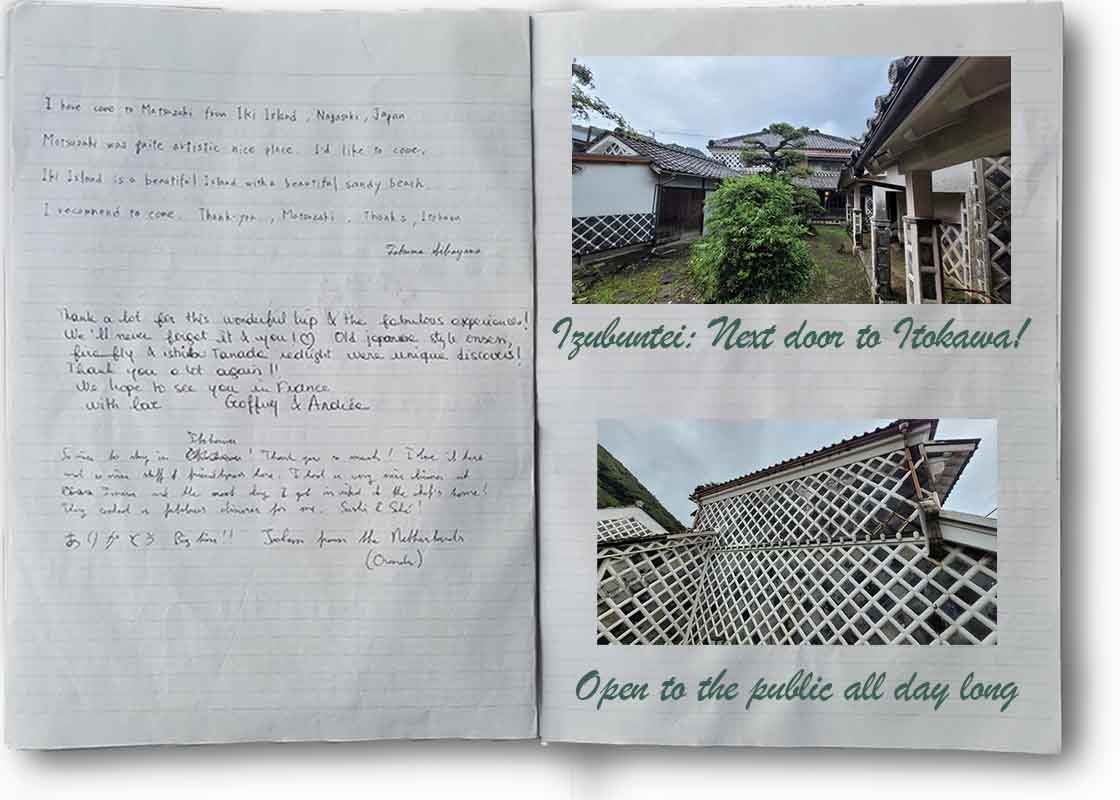 I have come to Matsuzaki from Iki Island, Nagasaki, Japan
Matsuzaki was quite artistic nice place. I'd like to come.
Iki Island is a beautiful Island with a beautiful sandy beach.
I recommend to come. Thank-you, Matsuzaki, Thanks, Itokawa
Thank a lot for this wonderful trip & the fabulous experiences!
We'll never forget it & you! ♡ Old japanese style onsen,
fire-fly & ishibu Tanada redlight were unique discovers!
Thank you a lot again!!
We hope to see you in France
with love Geoffroy & Andréa
Itokawa
So nice to stay in! Thank you so much! I love it here
and so nice staff & friendly here. I had a very nice dinner at
and the next day I got invited at the chef's home!
They cooked a fabulous dinner for me.
ありがとう Big kiss!! from the Netherlands
Izubuntei: Next door to Itokawa!
Open to the public all day long